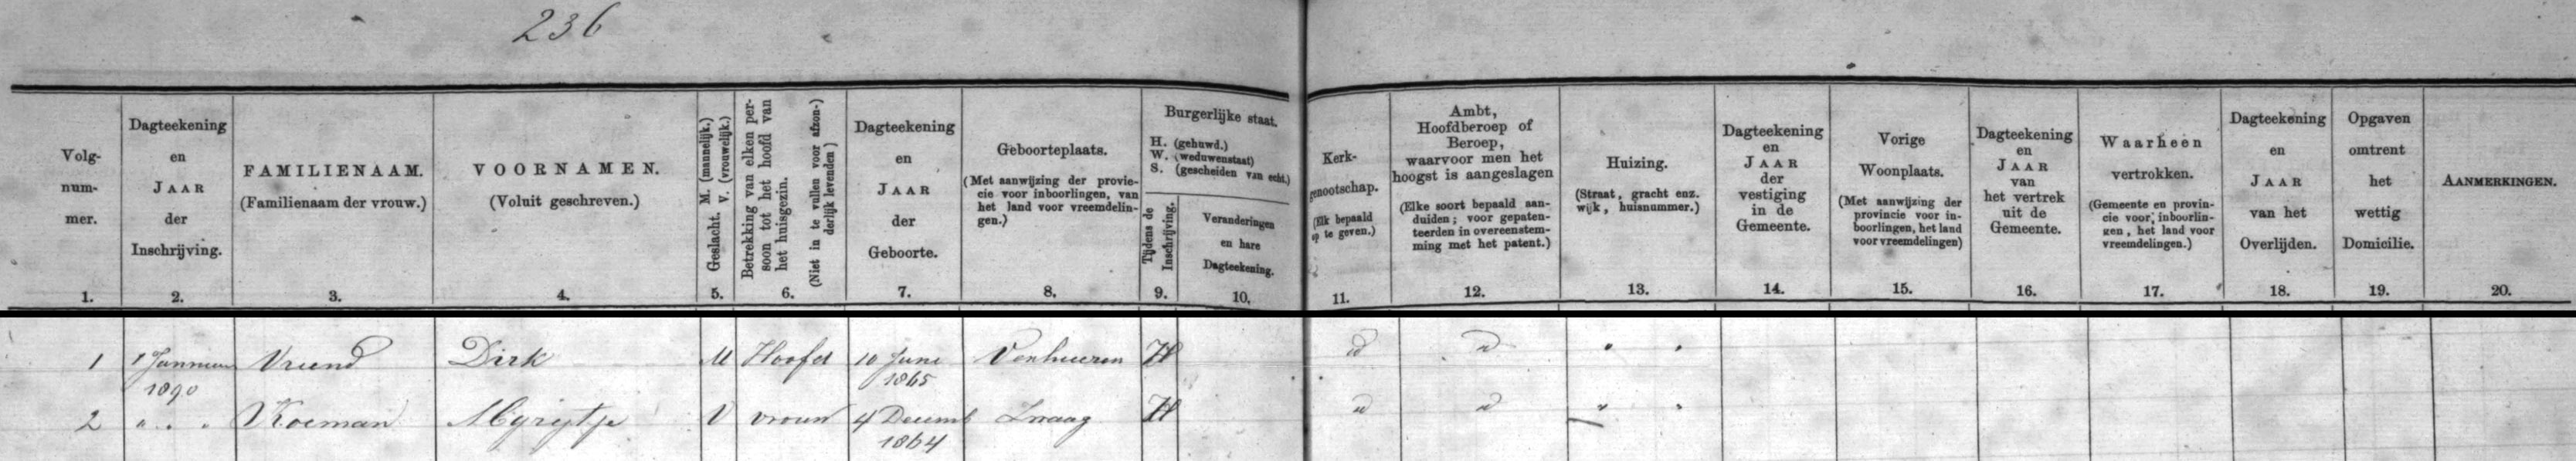 236
Volg-
num-
mer.
1.
Dagteekening
en
JAAR
der
Inschrijving.
2.
FAMILIENAAM.
(Familienaam der vrouw.)
3.
VOORNAMEN.
(Voluit geschreven.)
4.
Geslacht. M. (mannelijk.)
V. (vrouwelijk.)
5.
Betrekking van elken per-
soon tot het hoofd van
het huisgezin.
(Niet in te vullen voor afzon-
derlijk levenden)
6.
Dagteekening
en
JAAR
der
Geboorte.
7.
Geboorteplaats.
(Met aanwijzing der provin-
cie voor inboorlingen, van
het land voor vreemdelin-
gen.)
8.
Burgerlijke staat.
H. (gehuwd.)
W. (weduwenstaat)
S. (gescheiden van echt.)
Tijdens de
Inschrijving.
9.
Veranderingen
en hare
Dagteekening.
10.
Kerk-
genootschap.
(Elk bepaald
op te geven.)
11.
Ambt,
Hoofdberoep of
Beroep,
waarvoor men het
hoogst is aangeslagen
(Elke soort bepaald aan-
duiden; voor gepaten-
teerden in overeenstem-
ming met het patent.)
12.
Huizing.
(Straat, gracht enz.
wijk, huisnummer.)
13.
Dagteekening
en
JAAR
der
vestiging
in de
Gemeente.
14.
Vorige
Woonplaats.
(Met aanwijzing der
provincie voor in-
boorlingen, het land
voor vreemdelingen)
15.
Dagteekening
en
JAAR
van
het vertrek
uit de
Gemeente.
16.
Waarheen
vertrokken.
(Gemeente en provin-
cie voor inboorlin-
gen, het land voor
vreemdelingen.)
17.
Dagteekening
en
JAAR
van het
Overlijden.
18.
Opgaven
omtrent
het
wettig
Domicilie.
19.
AANMERKINGEN.
20.
1 1 Januari Vriend Dirk M Hoofd 10 Juni Venhuizen H id " " "
1890 1865
2 " " " Koeman Mgrijtje V vrouw 4 Decemb Zwaag H " " " "
1864